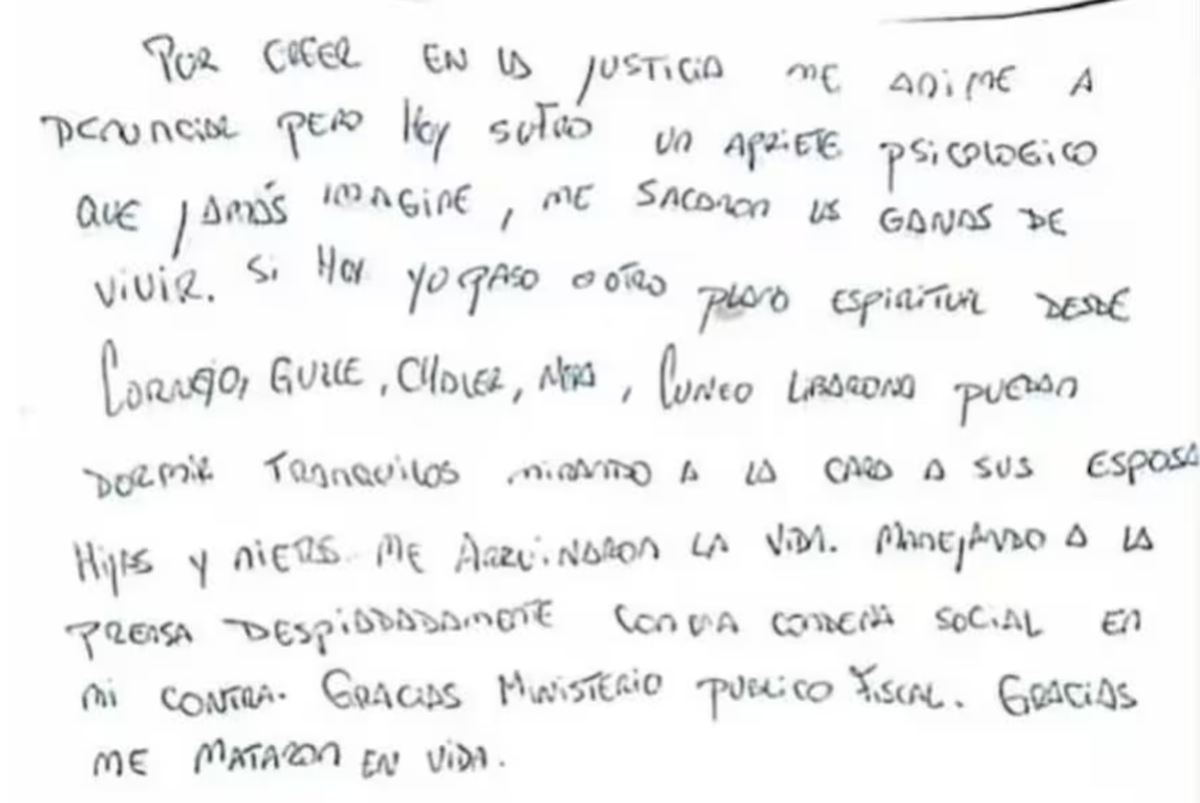 POR CREER EN LA JUSTICIA ME ANIME A
DENUNCIAR PERO HOY SUFRO UN APRIETE PSICOLOGICO
QUE JAMÁS IMAGINE, ME SACARON LAS GANAS DE
VIVIR. SI HOY YO PASO A OTRO PLANO ESPIRITUAL DESDE
CORNEJO, GULLE, CHALER, , CUNEO LIBARONA PUEDAN
DORMIR TRANQUILOS MIRANDO A LA CARA A SUS ESPOSA
HIJAS Y NIETAS. ME ARRUINARON LA VIDA. MANEJANDO A LA
PRENSA DESPIADADAMENTE CON UNA CONDENA SOCIAL EN
MI CONTRA. GRACIAS MINISTERIO PUBLICO FISCAL. GRACIAS
ME MATARON EN VIDA.